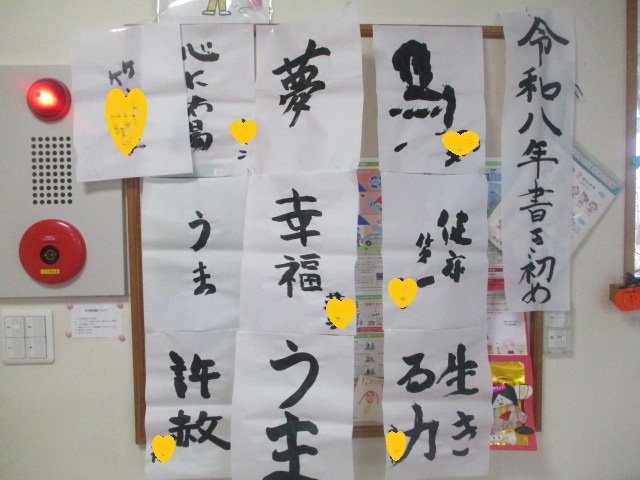 令和八年書き初め
馬
夢
心に太陽
竹
健康
第一
幸福
うま
生き
る力
うま
許赦